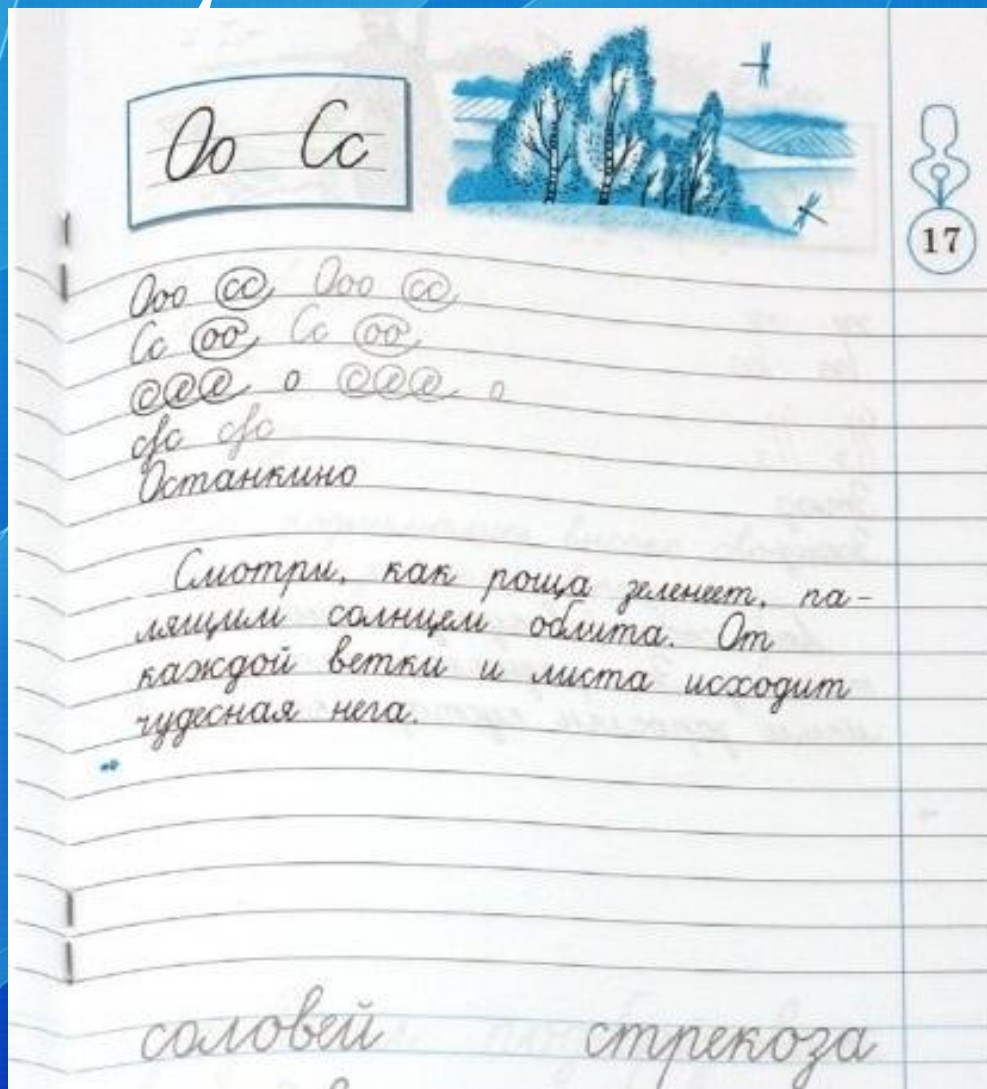 Оо Сс
17
Ооо сс Ооо сс
Сс оо Сс оо
ссс о ссс о
с/с с/с
Останкино
Смотри, как роща зеленеет, па-
лящим солнцем облита. От
каждой ветки и листа исходит
чудесная нега.
соловей стрекоза